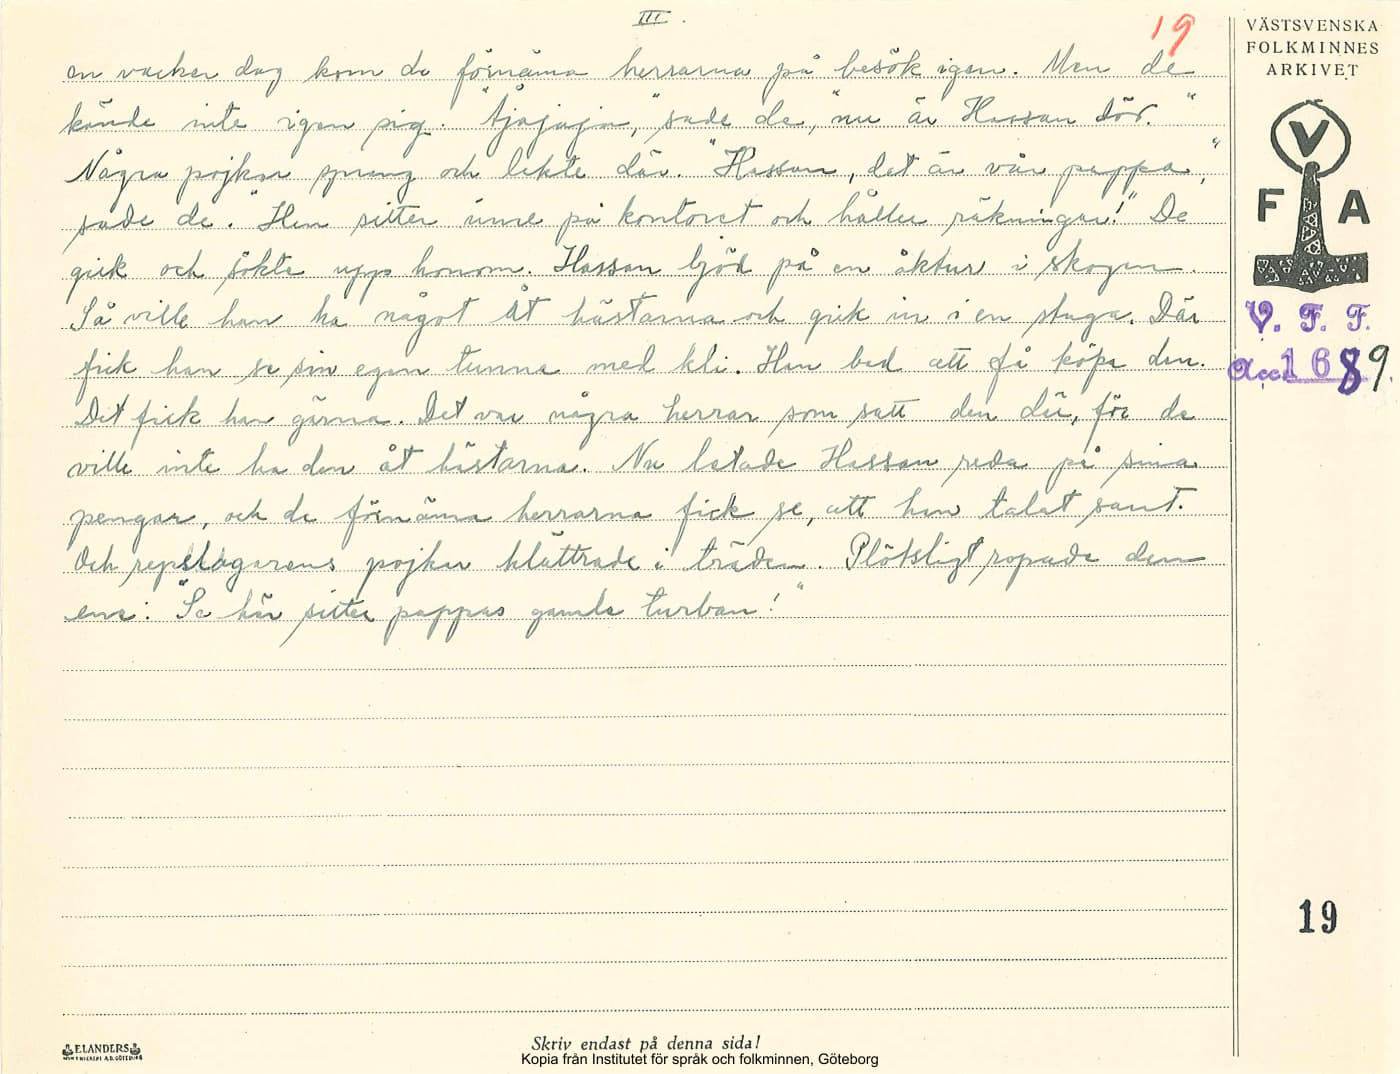 III.
19
en vacker dag kom de förnäma herrarna på besök igen. Men de
kände inte igen sig. "Åjajaja," sade de, "nu är Hassan död."
Några pojkar sprang och lekte där. "Hassan, det är vår pappa,"
sade de. "Han sitter inne på kontoret och håller räkningar!" De
gick och sökte upp honom. Hassan bjöd på en åktur i skogen.
Så ville han ha något åt hästarna och gick in i en stuga. Där
fick han se sin egen tunna med kli. Han bad att få köpa den.
Det fick han gärna. Det var några herrar som satt den där, för de
ville inte ha den åt hästarna. Nu letade Hassan reda på sina
pengar, och de förnäma herrarna fick se, att han talat sant.
Och repslagarens pojkar klättrade i träden. Plötsligt ropade den
ena: "Se här sitter pappas gamla turban!"
VÄSTSVENSKA
FOLKMINNES
ARKIVET
V
F A
V. F. F.
Acc. 1689
19
ELANDERS
Skriv endast på denna sida!
Kopia från Institutet för språk och folkminnen, Göteborg